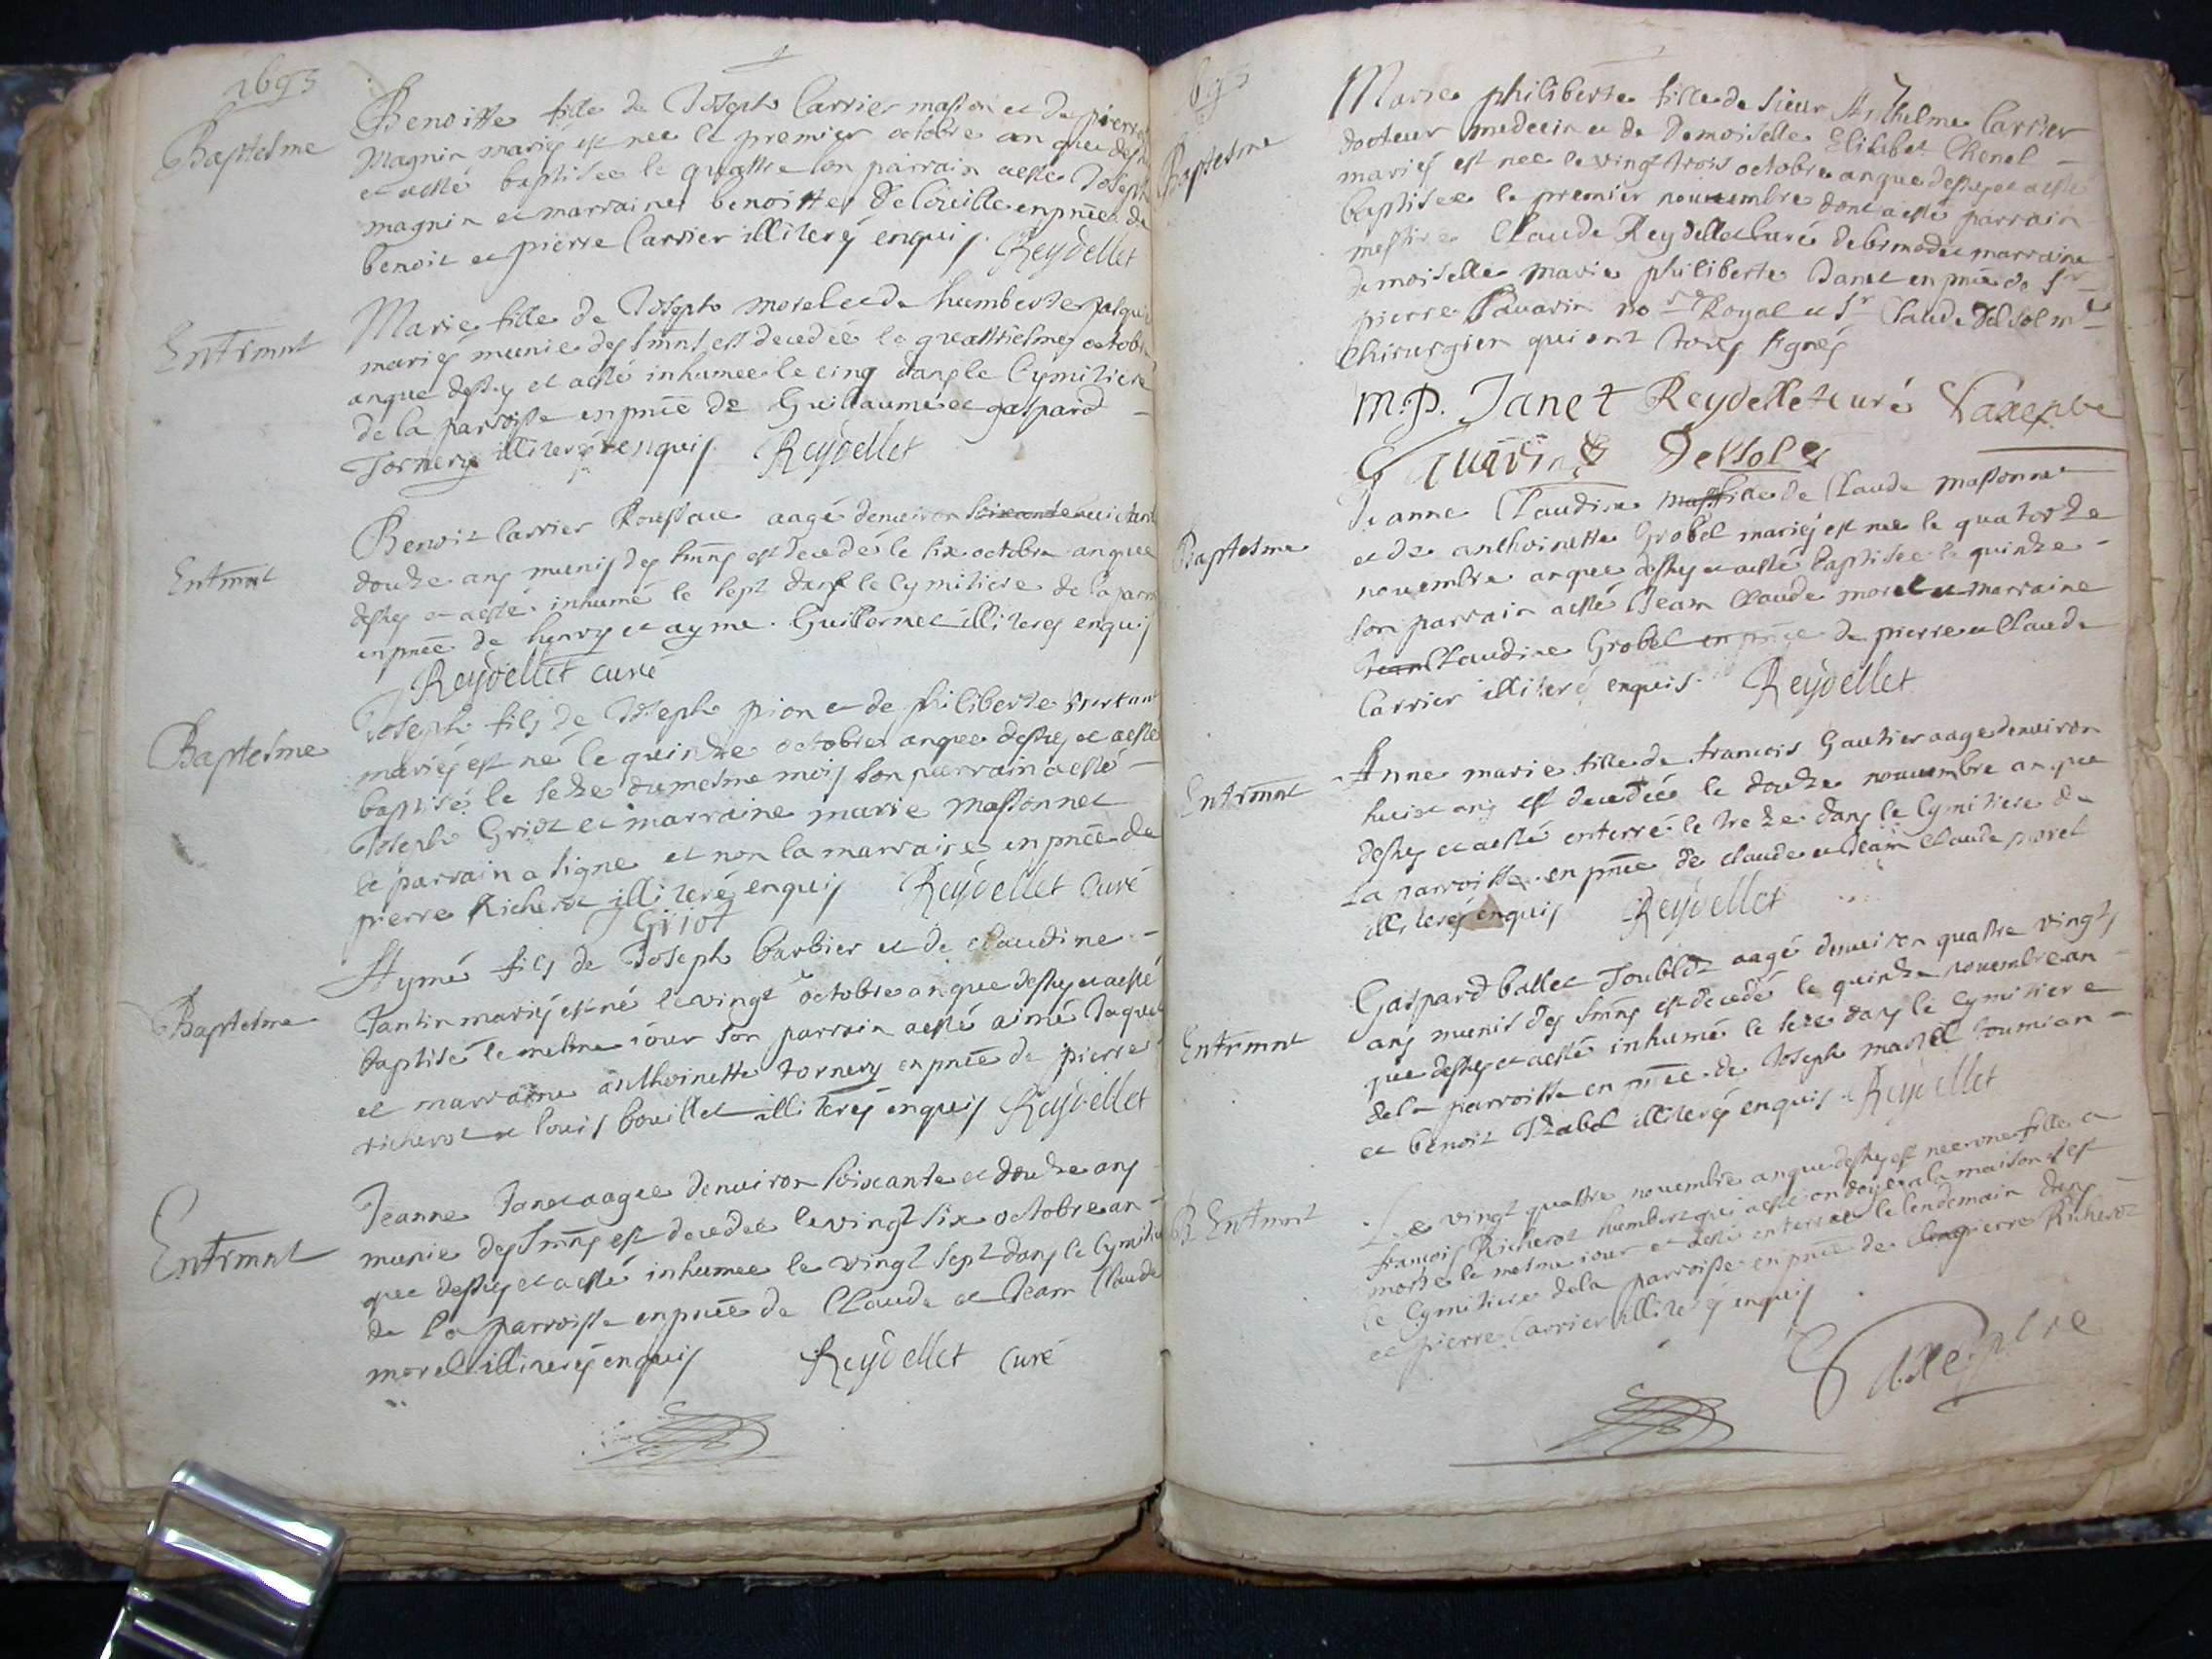 1693
Baptesme
Benoitte fille de Joseph Carrier masson et de pierre
magnin mariés est nee le premier octobre an que dessus
et a esté baptisée le quattre son parrain a esté Joseph
magnin et marraine benoitte en pnce de
benoit et pierre Carrier illiterés enquis. Reydellet
Entrmnt
Marie fille de Joseph morel et de humberte
mariés munie des smnts est decedée le quattriesme octobre
an que dessus et a esté inhumee le cinq dans le Cymitiere
de la parroisse en pnce de Guillaume et gaspard
Tornery illiterés enquis Reydellet
Entrmnt
Benoit Carrier Rousseau aagé denuiron soixante
douze ans munis des smns est decedé le six octobre an que
dessus et a esté inhumé le sept dans le Cymitiere de la parr
en pnce de henry et ayme Guillermet illiterés enquis
Reydellet curé
Baptesme
Joseph fils de Joseph pion et de philiberte
mariés est né le quinze octobre an que dessus et a esté
baptisé le seze du mesme mois son parrain a esté
Joseph Griot et marraine marie massonnet
le parrain a signe et non la marraine en pnce de
pierre Richerot illiterés enquis Reydellet Curé
J Griot
Baptesme
Aymé fils de Joseph barbier et de claudine
Jantin mariés est né le vingt octobre an que dessus et a esté
baptisé le mesme iour son parrain a esté aimé Jaquet
et marraine anthoinette tornery en pnce de pierre
richerot et louis bouillet illiterés enquis Reydellet
Entrmnt
Jeanne Janet aagee denuiron soixante et douze ans
munie des smns est decedee le vingt six octobre an
que dessus et a esté inhumee le vingt sept dans le Cymitie
de la parroisse en pnce de Claude et Jean Claude
morel illiterés enquis Reydellet Curé
693
Baptesme
Marie philiberte fille de sieur Anthelme Carrier
docteur medecin et de Demoiselle Elisabet Chenel
mariés est nee le vingt trois octobre an que dessus et a esté
baptisee le premier nouembre dont a esté parrain
messire Claude Reydellet curé et marraine
demoiselle marie philiberte Janet en pnce de Sr
pierre Pauarin nore Royal et Sr Claude Delsol mre
Chirurgien qui ont tous signés
M. P. Janet Reydellet curé
Delsol
Baptesme
Jeanne Claudine fille de Claude massonnet
et de anthoinette Grobel mariés est nee le quatorze
nouembre an que dessus et a esté baptisée le quinze
son parrain a esté Jean Claude morel et marraine
Claudine Grobel en pnce de pierre et Claude
Carrier illiterés enquis. Reydellet
Entrmnt
Anne marie fille de francois Gautier aage denuiron
huict ans est decedée le douze nouembre an que
dessus et a esté enterré le treze dans le Cymitiere de
La parroisse en pnce de claude et Jean Claude morel
illiterés enquis Reydellet
Entrmnt
Gaspard ballet aagé denuiron quattre vingts
ans munis des smns est decedé le quinze nouembre an
que dessus et a esté inhumé le seze dans le Cymitiere
de la parroisse en pnce de Joseph
et benoit illiterés enquis Reydellet
B Entrmnt
Le vingt quattre nouembre an que dessus est nee une fille a
françois Richerot humbert qui a esté ondoyee a la maison et est
morte le mesme iour et a esté enterree le lendemain dans
le Cymitiere de la parroisse en pnce de pierre Richerot
et pierre Carrier illiterés enquis